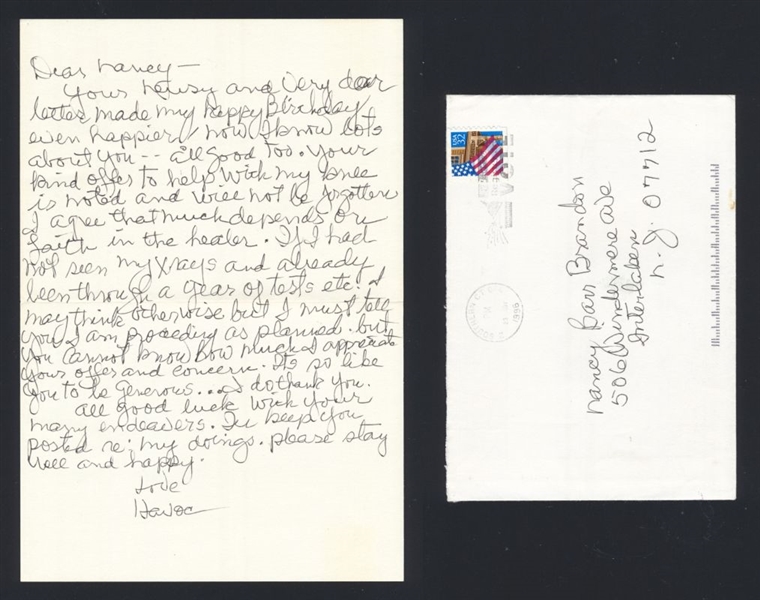 Dear Nancy —
Your newsy and very dear
letter made my happy Birthday
even happier, now I know lots
about you -- all good too. Your
kind offer to help with my knee
is noted and will not be forgotten
I agree that much depends on
faith in the healer. If I had
not seen my Xrays and already
been through a year of tests etc. I
may think otherwise but I must tell
you I am proceding as planned. but
you cannot know how much I appreciate
your offer and concern. Its so like
you to be generous... I do thank you.
all good luck with your
many endeavers. I'll keep you
posted re: my doings. please stay
well and happy.
Love
Havoc
USA 32
VOTE
PM
1996
Nancy Barr Brandon
506 Windermere ave
Interlaken
N.J. 07712